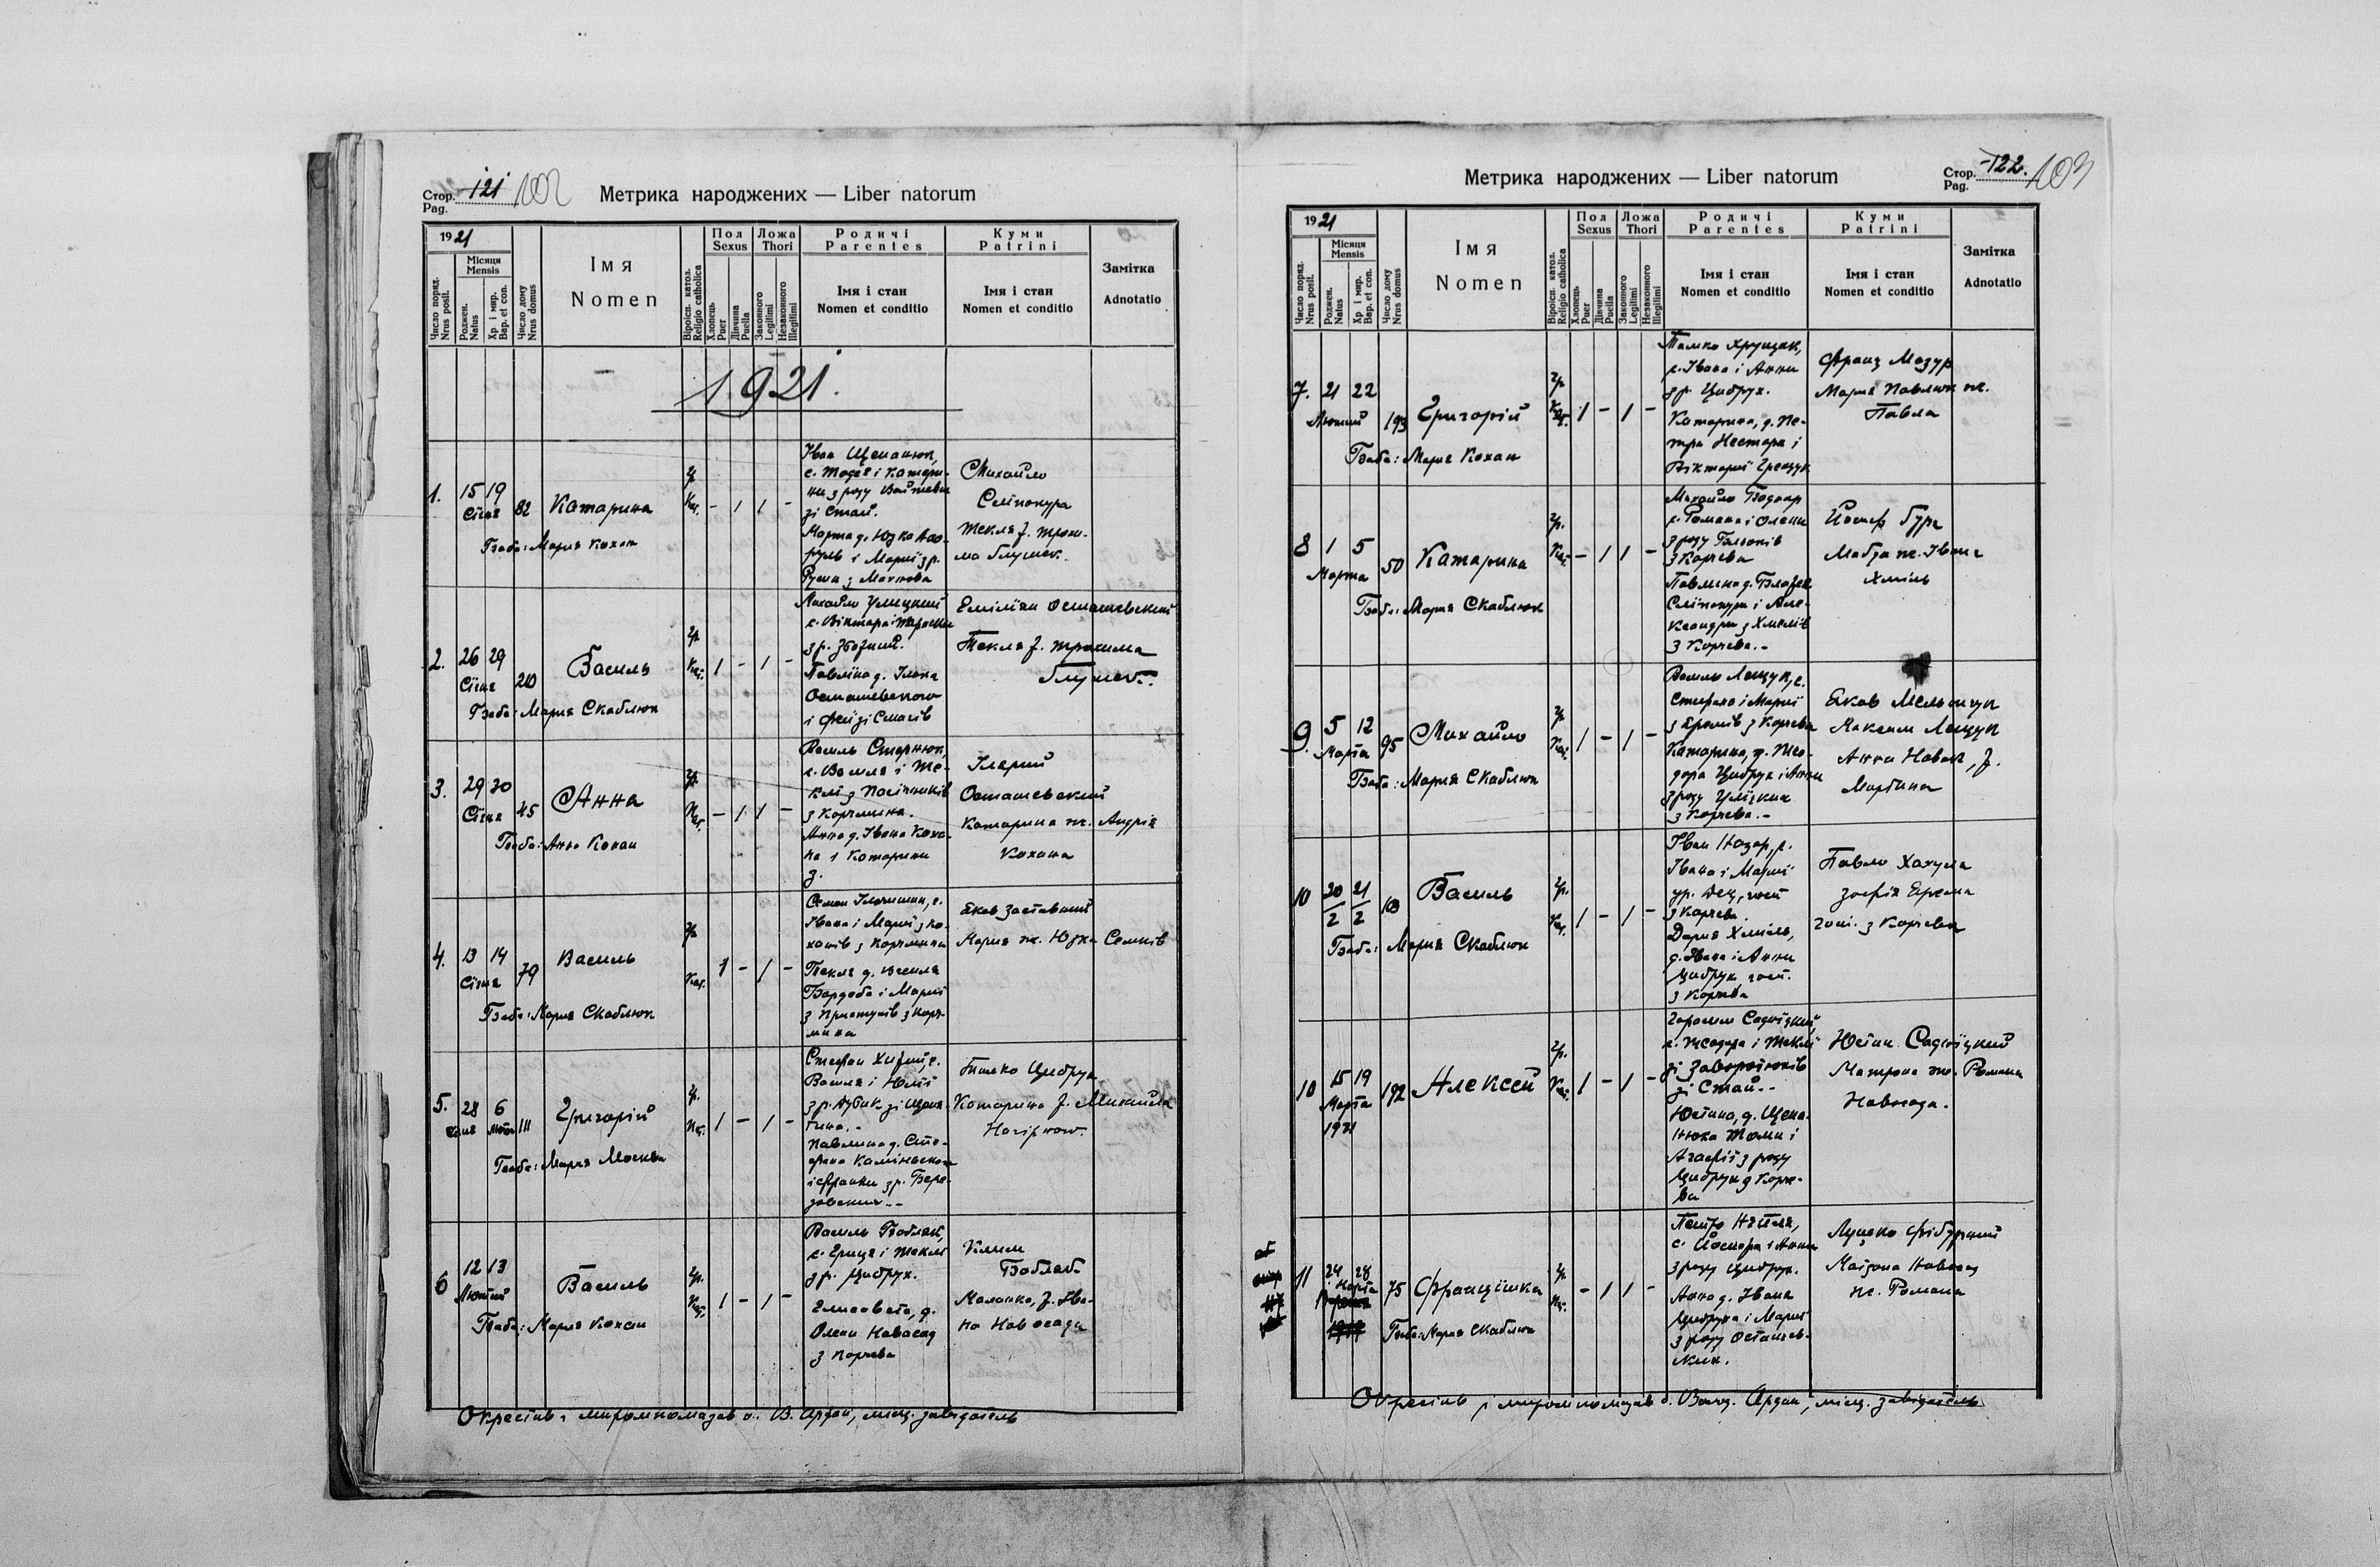 Стор. 121 102
Pag.
Метрика народжених — Liber natorum
1921
Число поряд.
Nrus posit.
Місяця
Mensis
Роджен.
Natus
Хр. і мир.
Bap. et con.
Число дому
Nrus domus
Імя
Nomen
Віроісп. катол.
Religio catholica
Пол
Sexus
Хлопець
Puer
Дівчина
Puella
Ложа
Thori
Законного
Legitimi
Незаконного
Illegitimi
Родичі
Parentes
Імя і стан
Nomen et conditio
Куми
Patrini
Імя і стан
Nomen et conditio
Замітка
Adnotatio
1921.
1.
15 19
Січня
82
Катарина
Баба: Мария Кохан
гр.
Кат.
- 1 1 -
Іван Щепанюк,
с. Тодея і Катери-
ни з роду
зі Стай.
Марта д. Юзка
і Марії з р.
з Махнова
Михайло
Сліпокура
Текля ж. Трохи-
ма Глушак.
2.
26 29
Січня
210
Василь
Баба: Мария Скаблюк
гр.
Кат.
1 - 1 -
Михайло Улицкий
с. Віктора і
з р.
Павліна д. Ілька
Осташевского
і зі Стаїв
Еміліян Осташевский
Текля ж. Трохима
Глушак.
3.
29 30
Січня
45
Анна
Баба: Анна Кохан
гр.
Кат.
- 1 1 -
Василь Стернюк,
с. Василя і Те-
клі з Посічників
з Корчмина.
Анна д. Івана Коха-
на і Катарини
з.
Ілярий
Осташевский
Катарина ж. Андрія
Кохана
4.
13 14
Січня
79
Василь
Баба: Мария Скаблюк
гр.
Кат.
1 - 1 -
Семен с.
Івана і Марії з Ко-
ханів з Корчмина
Текля д. Василя
і Марії
з Приступів з Корч-
мина
Яков Заставний
Мария ж. Юзка Семків
5.
28 6
Січня Лютого
111
Григорій
Баба: Мария Москва
гр.
Кат.
1 - 1 -
Стефан с.
Василя і Юлії
з р. зі Щеп-
тина.-
Павлина д. Сте-
фана Каміньского
і Франки з р. Бере-
зовских.-
Тимко Цибрух
Катарина ж. Михайла
6
12 13
Лютий
Василь
Баба: Мария Кохан
гр.
Кат.
1 - 1 -
Василь Бабляк,
с. Гриця і Теклі
з р. Цибрух.
Елисавета, д.
Олени Навосад
з Корчева
Клим
Бабляк
Маланка, ж. Іва-
на Навосада
Окрестив і миропомазав о. В. Ардан, місц. завідатель
Стор. 122. 103
Pag.
Метрика народжених — Liber natorum
1921
Число поряд.
Nrus posit.
Місяця
Mensis
Роджен.
Natus
Хр. і мир.
Bap. et con.
Число дому
Nrus domus
Імя
Nomen
Віроісп. катол.
Religio catholica
Пол
Sexus
Хлопець
Puer
Дівчина
Puella
Ложа
Thori
Законного
Legitimi
Незаконного
Illegitimi
Родичі
Parentes
Імя і стан
Nomen et conditio
Куми
Patrini
Імя і стан
Nomen et conditio
Замітка
Adnotatio
7.
21 22
Лютий
193
Григорій
Баба: Мария Кохан
гр.
Кат.
1 - 1 -
Тимко Хрущак,
с. Івана і Анни
з р. Цибрух.
Катарина, д. Пе-
тра Нестора і
Вікториї Грещук
Франц Мазур
Мария Павлюк ж.
Павла
8
1 5
Марта
50
Катарина
Баба: Мария Скаблюк
гр.
Кат.
- 1 1 -
Михайло Боднар
с. Романа і Олени
з роду
з Корчева
Павлина д. Блажея
Сліпокури і Але-
ксандри з Хмілів
з Корчева.-
Йосиф Гура
ж. Івана
Хміль
9
5 12
Марта
95
Михайло
Баба: Мария Скаблюк
гр.
Кат.
1 - 1 -
Василь Лещук, с.
Стефана і Марії
з з Корчева
Катарина, д. Тео-
дора Цибрух і Анни
з роду Уліцких
з Корчева.-
Яков Мельничук
Максим Лещук
Анна Новак, ж.
Мартина
10
20/2 21/2
103
Василь
Баба: Мария Скаблюк
гр.
Кат.
1 - 1 -
Іван Назар, с.
Івана і Марії
ур. Дец, госп.
з Корчева.
Дария Хміль,
д. Івана і Анни
Цибрух госп.
з Корчева
Павло Хахула
Зофія Ярема
госп. з Корчева
10
15 19
Марта
1921
192
Алексей
гр.
Кат.
1 - 1 -
Герасим Садовіцкий,
с. Теодора і Теклі
зі Заворотюків
зі Стай.-
Юстина, д. Щепа-
нюка Томи і
Агафії з роду
Цибрух з Корче-
ва
Юстин Садовіцкий
Матрона ж. Романа
Навосада.
11
24 28
Марта
75
Францішка
Баба: Мария Скаблюк
гр.
Кат.
- 1 1 -
Петро
с. Йосифа і Анни
з роду Цибрух.
Анна д. Івана
Цибруха і Марії
з роду Осташев-
ских.
Луцко
Навосад
ж. Романа
Окрестив і миропомазав о. Волод. Ардан, місц. завідатель